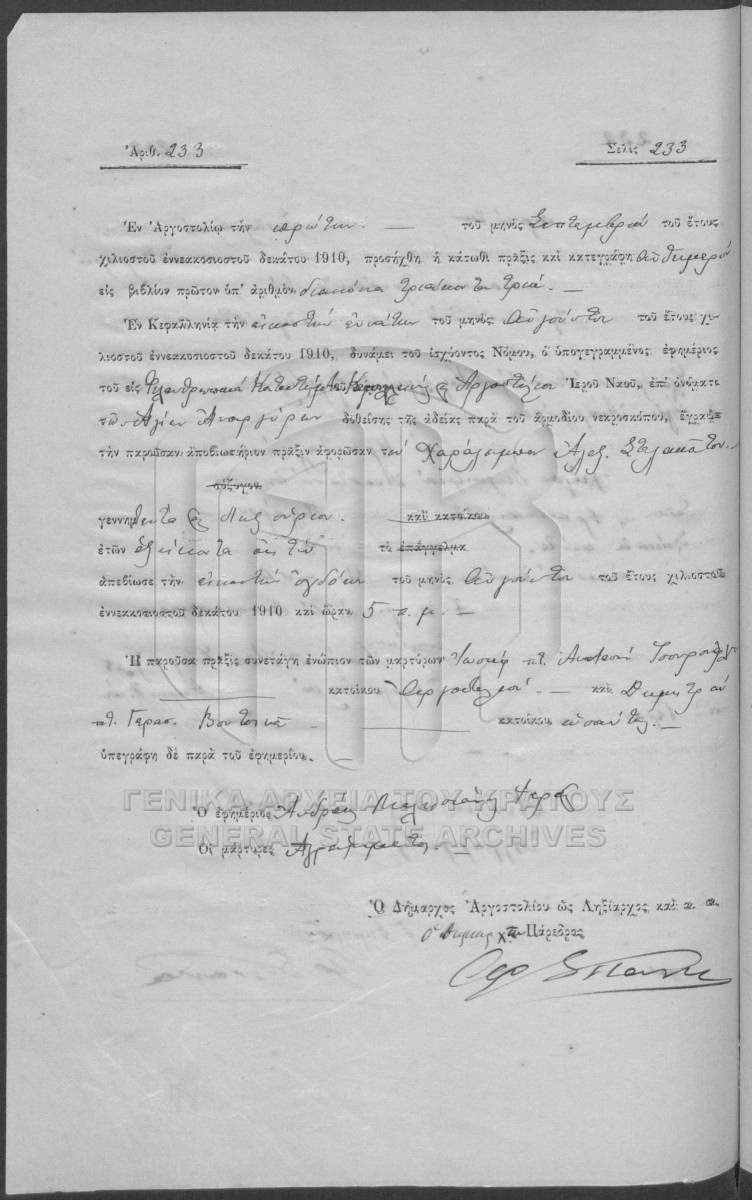 Ἀριθ. 233 Σελὶς 233
Ἐν Ἀργοστολίῳ τὴν πρώτην τοῦ μηνὸς Σεπτεμβρίου τοῦ ἔτους
χιλιοστοῦ ἐννεακοσιοστοῦ δεκάτου 1910, προσήχθη ἡ κάτωθι πρᾶξις καὶ κατεγράφη αὐθημερόν
εἰς βιβλίον πρῶτον ὑπ' ἀριθμὸν διακόσια τριάκοντα τρία.
Ἐν Κεφαλληνίᾳ τὴν εἰκοστὴν ἐννάτην τοῦ μηνὸς Αὐγούστου τοῦ ἔτους χι-
λιοστοῦ ἐννεακοσιοστοῦ δεκάτου 1910, δυνάμει τοῦ ἰσχύοντος Νόμου, ὁ ὑπογεγραμμένος ἐφημέριος
τοῦ εἰς Φιλανθρωπικὰ Καταστήματα Ἀργοστολίου Ἱεροῦ Ναοῦ, ἐπ' ὀνόματι
τῶν Ἁγίων Ἀναργύρων δοθείσης τῆς ἀδείας παρὰ τοῦ ἁρμοδίου νεκροσκόπου, ἔγραψε
τὴν παροῦσαν ἀποβιωτήριον πρᾶξιν ἀφορῶσαν τὸν Χαράλαμπον Ἀλεξ. Στελακάτον
σύζυγον
γεννηθέντα εἰς Ληξούριον καὶ κατοίκου
ἐτῶν ἑξήκοντα ὀκτώ τὸ ἐπάγγελμα
ἀπεβίωσε τὴν εἰκοστὴν ὀγδόην τοῦ μηνὸς Αὐγούστου τοῦ ἔτους χιλιοστοῦ
ἐννεακοσιοστοῦ δεκάτου 1910 καὶ ὥραν 5 π.μ.
Ἡ παροῦσα πρᾶξις συνετάγη ἐνώπιον τῶν μαρτύρων Ἰωσὴφ π.
κατοίκου Ἀργοστολίου καὶ Δημητρίου
π. Γερασ. κατοίκου ὡσαύτως
ὑπεγράφη δὲ παρὰ τοῦ ἐφημερίου.
ΓΕΝΙΚΑ ΑΡΧΕΙΑ ΤΟΥ ΚΡΑΤΟΥΣ
Ὁ ἐφημέριος Ἀνδρέας Ἱερεύς
GENERAL STATE ARCHIVES
Οἱ μάρτυρες Ἀγράμματοι
Ὁ Δήμαρχος Ἀργοστολίου ὡς Ληξίαρχος καὶ α. α.
ὁ Δημαρχ. Πάρεδρος